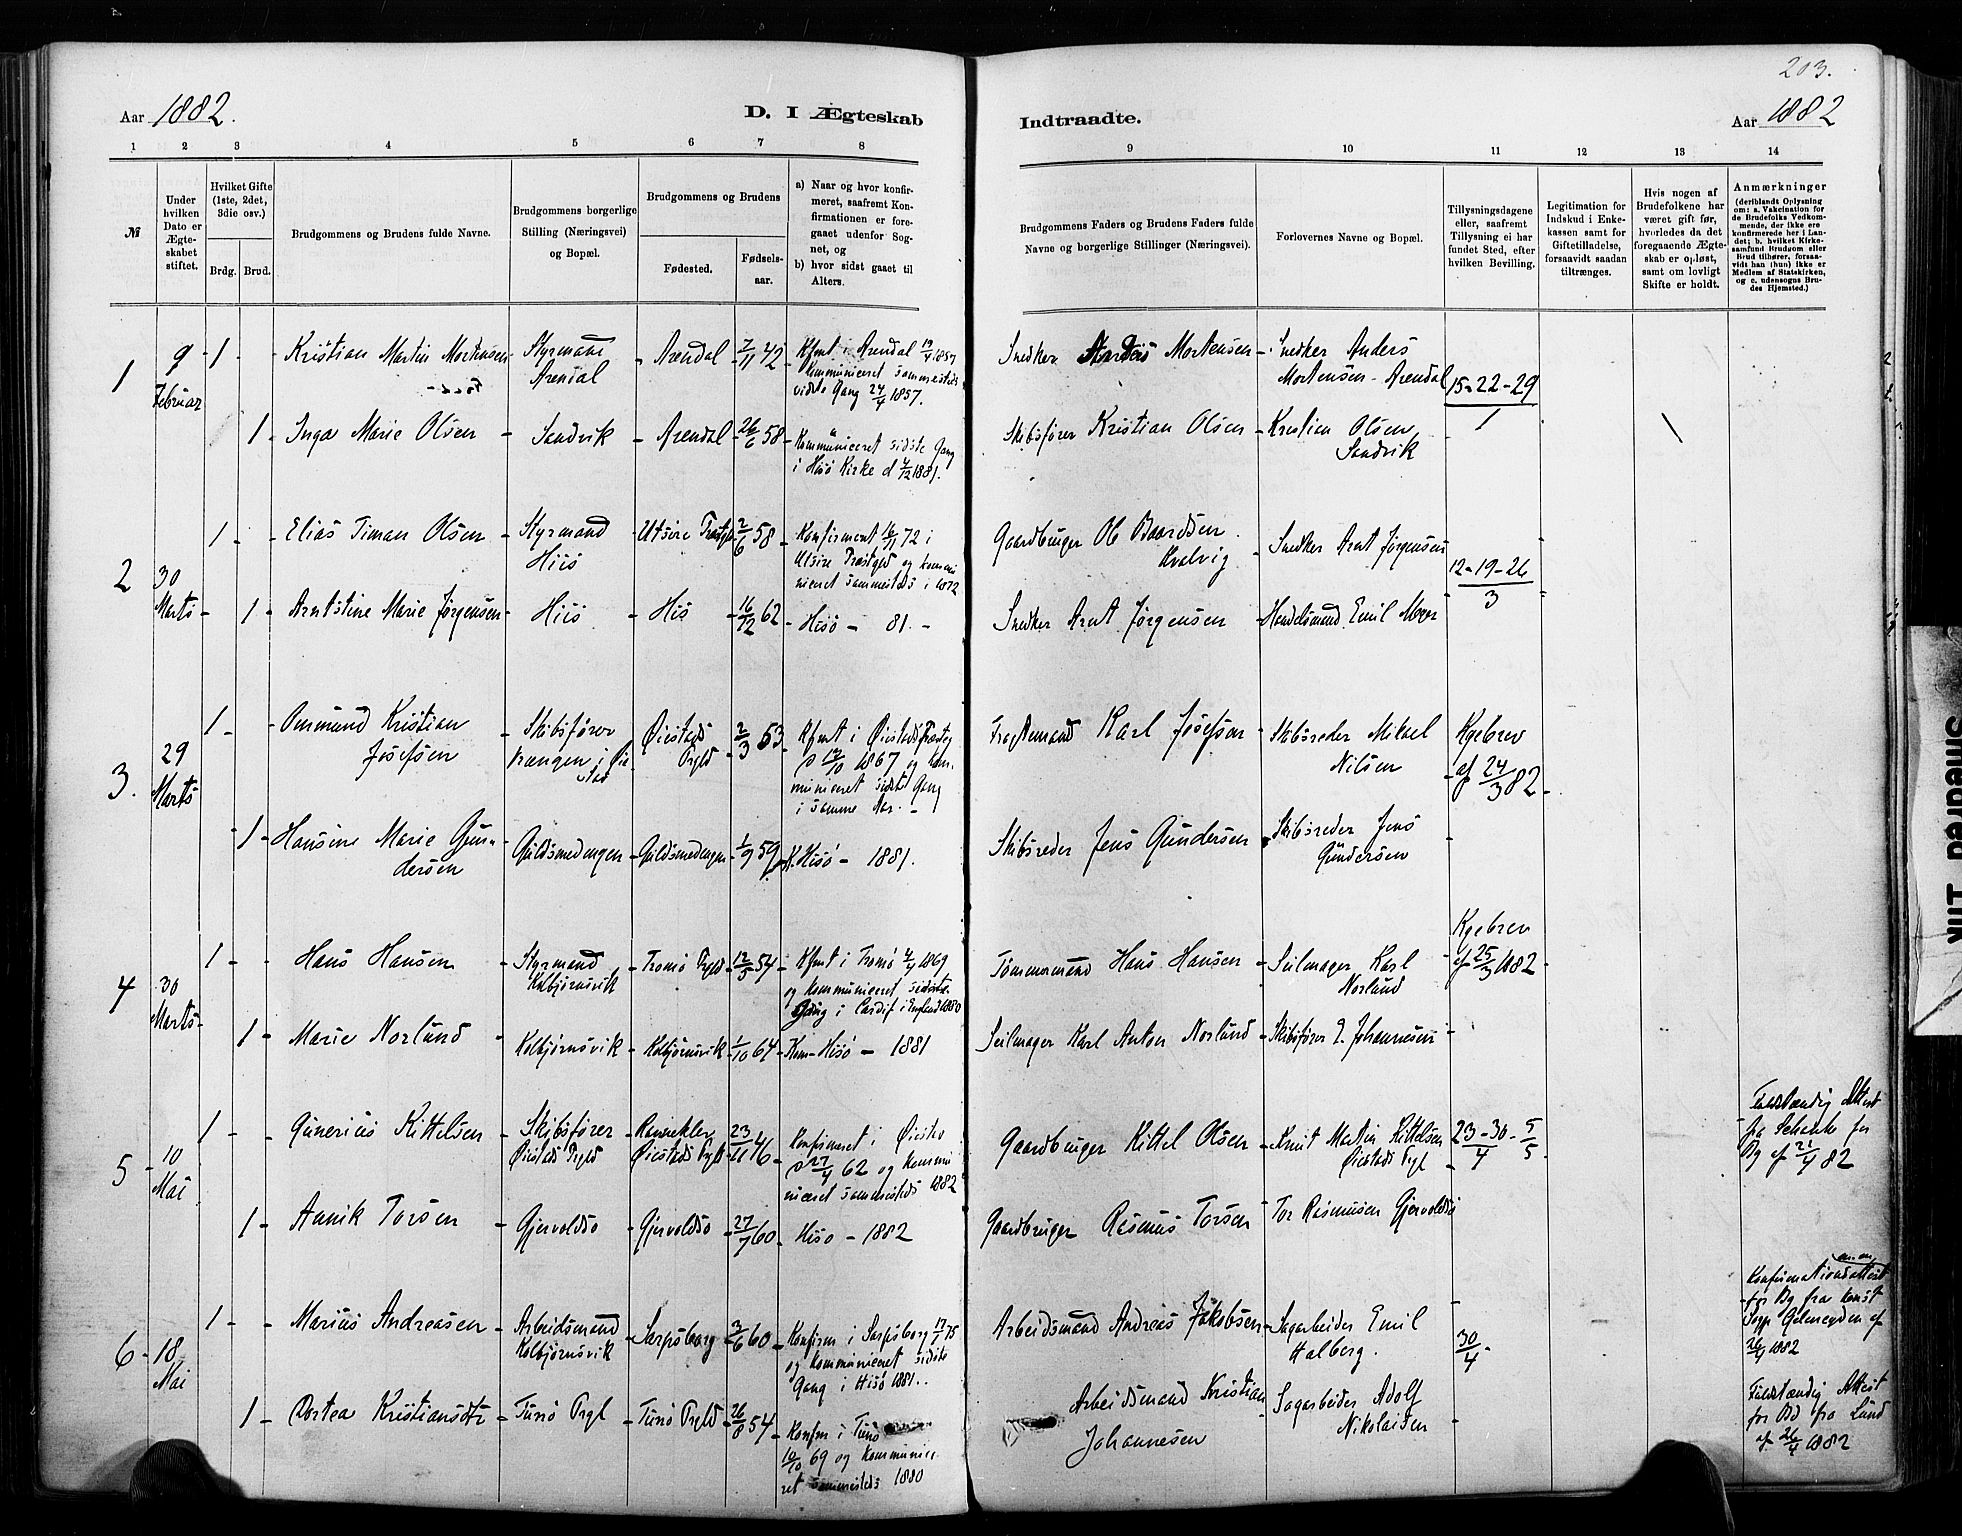 203.
Aar 1882.
D. I Ægteskab
Indtraadte.
Aar 1882
1 2 3 4 5 6 7 8 9 10 11 12 13 14
№
Under hvilken Dato er Ægteskabet stiftet.
Hvilket Gifte (1ste, 2det, 3die osv.)
Brdg. Brud.
Brudgommens og Brudens fulde Navne.
Brudgommens borgerlige Stilling (Næringsvei) og Bopæl.
Brudgommens og Brudens
Fødested.
Fødselsaar.
a) Naar og hvor konfirmeret, saafremt Konfirmationen er foregaaet udenfor Sognet, og
b) hvor sidst gaaet til Alters.
Brudgommens Faders og Brudens Faders fulde Navne og borgerlige Stillinger (Næringsvei).
Forlovernes Navne og Bopæl.
Tillysningsdagene eller, saafremt Tillysning ei har fundet Sted, efter hvilken Bevilling.
Legitimation for Indskud i Enkekassen samt for Giftetilladelse, forsaavidt saadan tiltrænges.
Hvis nogen af Brudefolkene har været gift før, hvorledes da det foregaaende Ægteskab er opløst, samt om lovligt Skifte er holdt.
Anmærkninger (deriblandt Oplysning om: a. Vakcination for de Brudefolks Vedkommende, der ikke ere konfirmerede her i Landet; b. hvilket Kirkesamfund Brudgom eller Brud tilhører, forsaavidt han (hun) ikke er Medlem af Statskirken, og c. udensogns Brudes Hjemsted.)
1 9 Februar 1 Kristian Martin Mortensen Styrmand Arendal Arendal 7/11 42 Kfmt i Arendal 19/4 1857 Kommuniceret sammesteds sidste Gang 24/4 1857. Snedker Anders Mortensen Snedker Anders Mortensen - Arendal 15-22-29/1
1 Inga Marie Olsen Sandvik Arendal 26/6 58 Kommuniceret sidste Gang i Hisö Kirke d 4/12 1881. Skibsfører Kristian Olsen Kristian Olsen Sandvik
2 30 Marts 1 Elias Timan Olsen Styrmand Hisö Utsire Præstgd 2/6 58 Konfirmert 16/11 72 i Utsire Præstgd og kommuniceret sammesteds i 1872 Gaardbruger Ole Baardsen Kvalvig Snedker Arnt Jørgensen 12-19-26/3
1 Arntstine Marie Jørgensen Hisö His 16/12 62 Hisö - 81. Snedker Arnt Jørgensen Handelsmand Emil Moer
3. 29 Marts 1 Omund Kristian Josefsen Skibsfører Vrængen i Øiestad Øiestad Prgld 2/3 53 Kfmt i Øiestad Præsteg 13/10 1867 og kommuniceret sidste Gang i samme Aar. Fragtemand Karl Josefson Skibsreder Mikael Nilsen Kgebrev af 24/3 82
1 Hansine Marie Gundersen Guldsmedengen Guldsmedengen 1/9 59 K. Hisö - 1881. Skibsreder Jens Gundersen Skibsreder Jens Gundersen
4 30 Marts 1 Hans Hansen Styrmand Kolbjørnsvik Tromö Prgld 12/5 54 Kfmt i Tromö 4/4 1869 og kommuniceret sidste Gang i Cardif i England 1880 Tømmermand Hans Hansen Seilmager Karl Norlund Kgebrev af 25/3 1882
1 Marie Norlund Kolbjørnsvik Kolbjørnsvik 1/10 64 Kom- Hisö - 1881 Seilmager Karl Anton Norlund Skibsfører E. Johannesen
5 10 Mai 1 Gunerius Kittelsen Skibsfører Øiestad Prgld Rannekler Øiestad Prgld 23/11 46 Konfirmeret i Øiesta d 27/4 62 og kommuniceret sammesteds 1882 Gaardbruger Kittel Olsen Knut Martin Kittelsen Øiestads Prgl 23-30/4 - 5/5 Fuldstændig Attest fra Schenk for Bg af 21/4 82
1 Annik Torsen Gjervoldsö Gjervoldsö 27/7 60 Hisö - 1882 Gaardbruger Rasmus Torsen Tor Rasmusen Gjervoldsö
6 18 Mai 1 Marius Andreasen Arbeidsmand Kolbjørnsvik Sarpsborg 3/6 60 Konfirm i Sarpsborg 17/1 75 og kommuniceret sidste Gang i Hisö 1881. Arbeidsmand Andreas Jakobsen Sagarbeider Emil Halberg. 30/4 Konfirmationsattest for Bg fra const Sogp Gelmeyden af 26/4 1882
1 Dortea Kristiansdtr Turö Prgl Turö Prgld 26/8 54 Konfm i Turö 10/10 69 og kommuniceret sammesteds 1880 Arbeidsmand Kristian Johannesen Sagarbeider Adolf Nikolaisen Fuldstændig Attest for Bd fra Lund af 26/4 1882